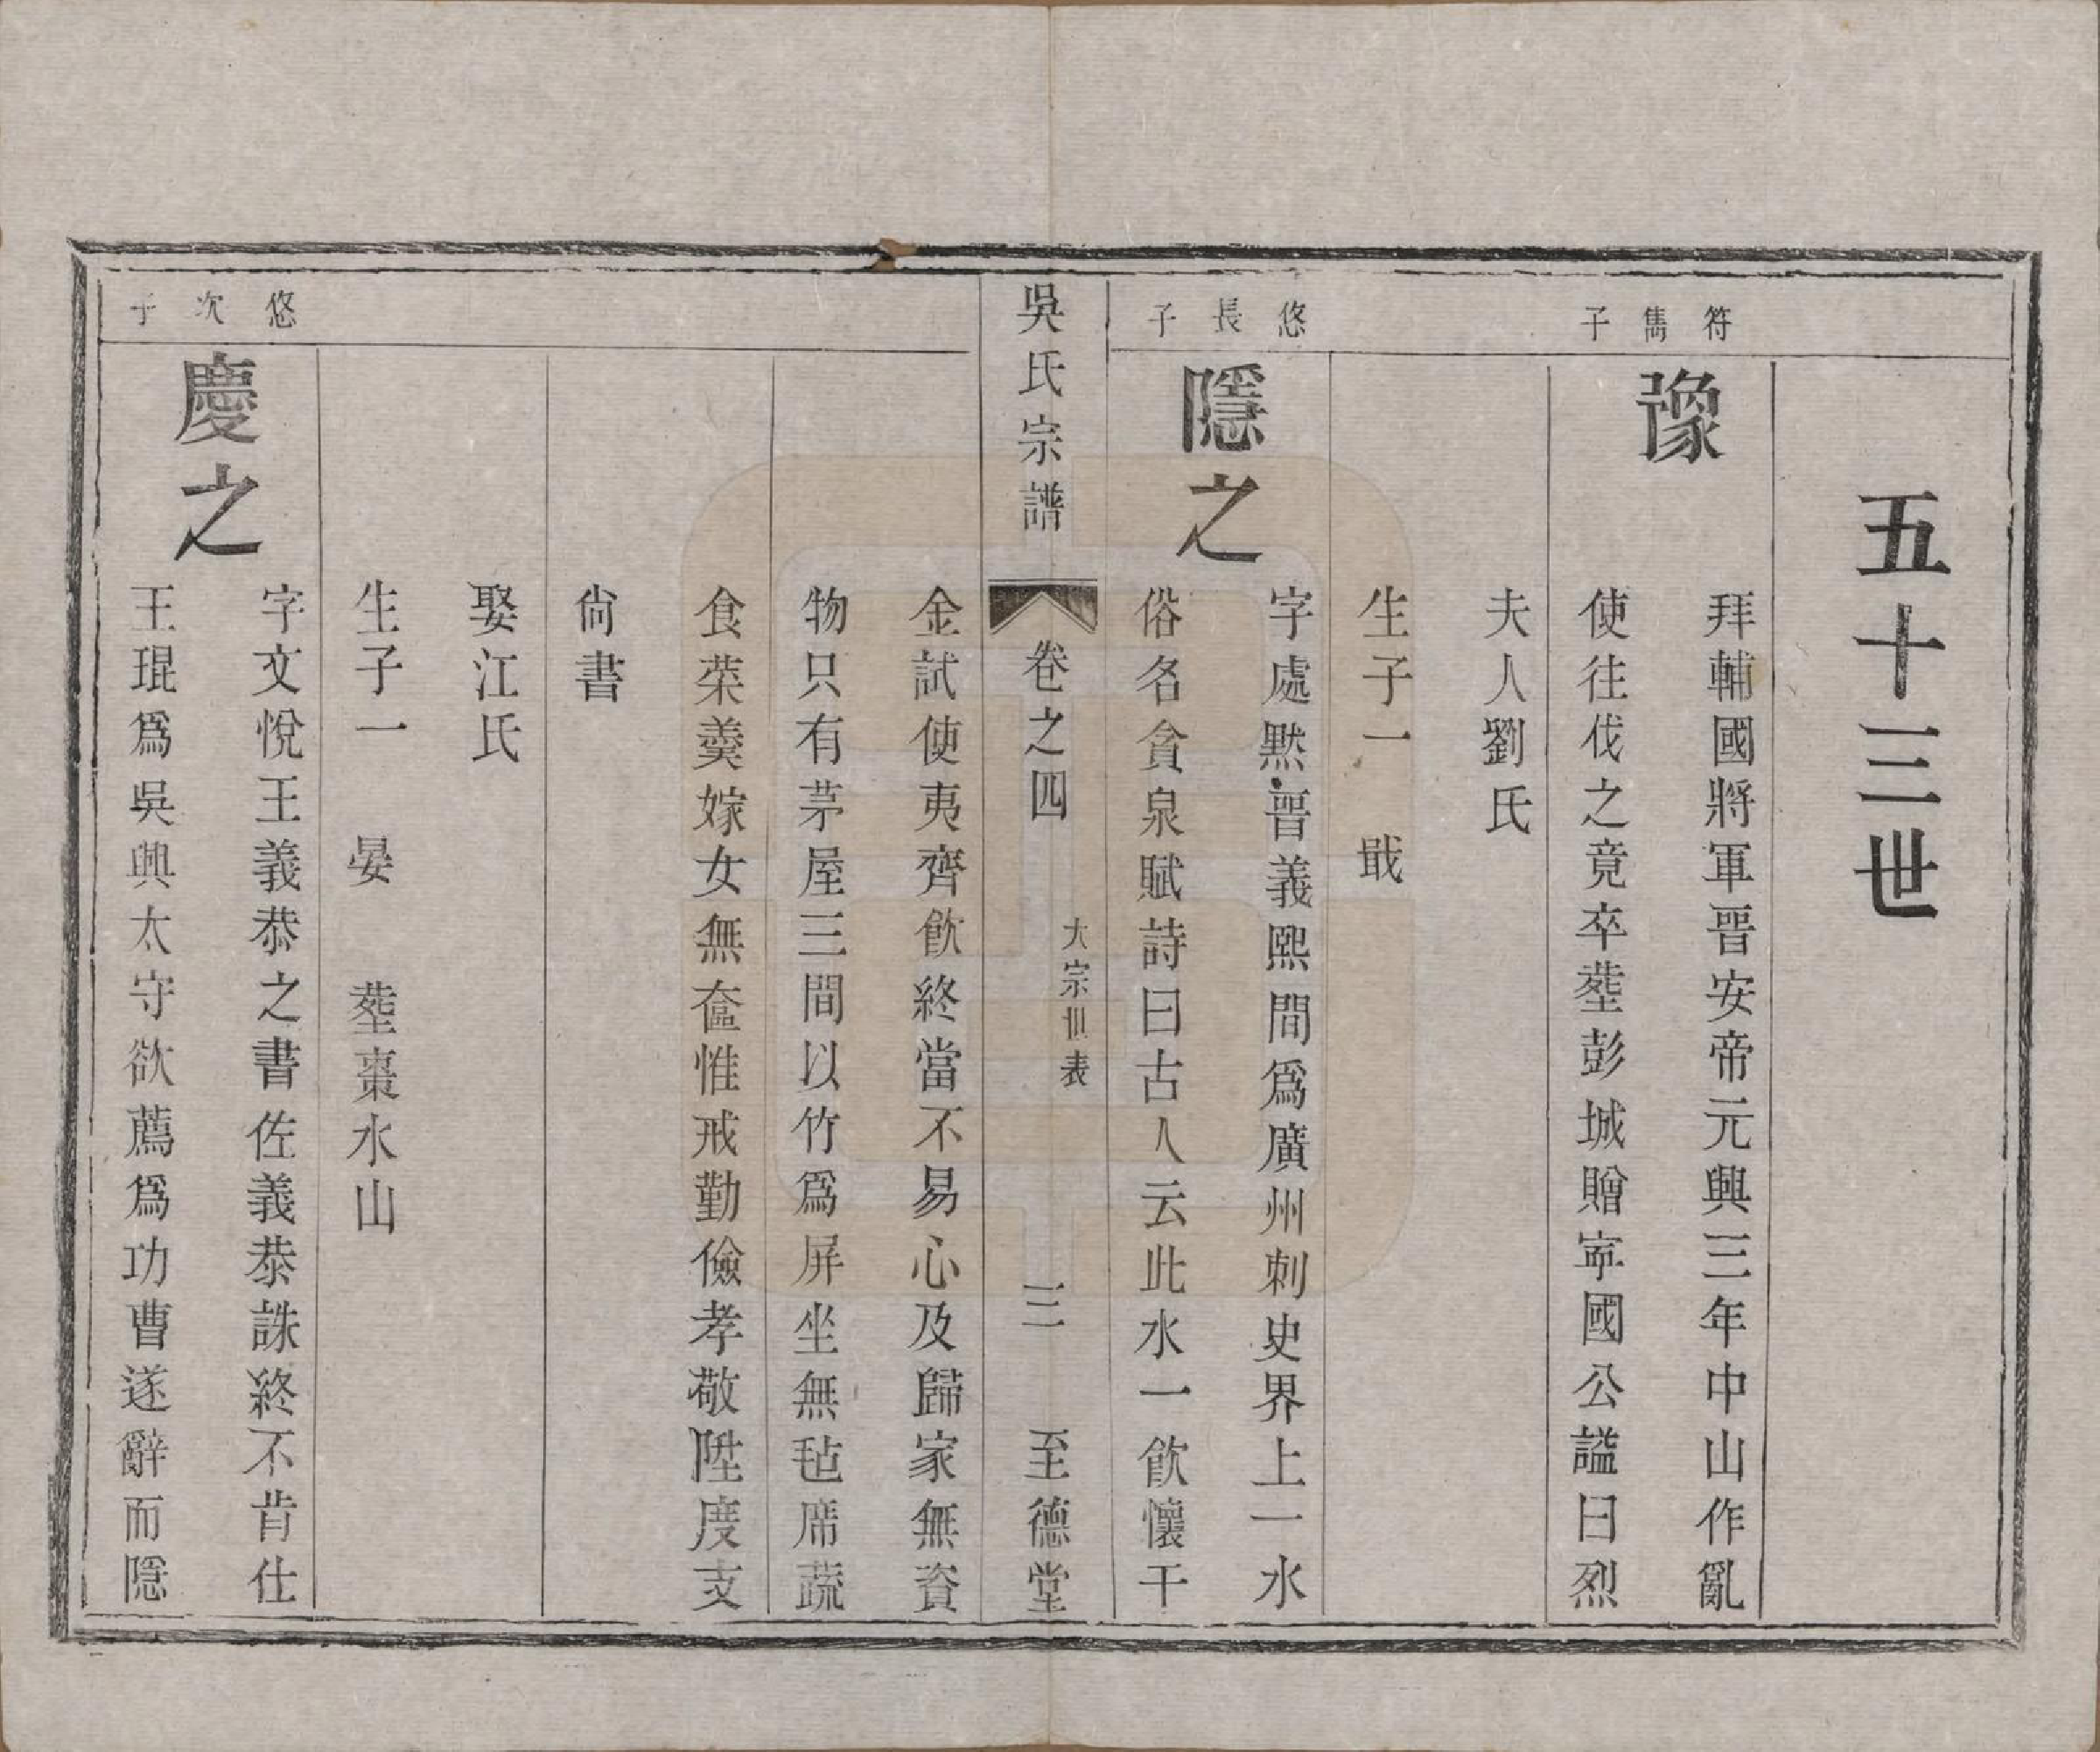 五十三世
符雋子
豫
拜輔國將軍晉安帝元興三年中山作亂
使往伐之竟卒塟彭城贈寜國公謚曰烈
夫人劉氏
生子一　戢
悠長子
隱之
字處黙晉義熙間爲廣州刺史界上一水
俗名貪泉賦詩曰古人云此水一飲懷千
吳氏宗譜
卷之四
大宗世表
三
至德堂
金試使夷齊飲終當不易心及歸家無資
物只有茅屋三間以竹爲屏坐無毡席蔬
食菜羮嫁女無奩惟戒勤儉孝敬陞度支
尙書
娶江氏
生子一　晏　塟棗水山
悠次子
慶之
字文悅王義恭之書佐義恭誅終不肯仕
王琨爲吳興太守欲薦爲功曹遂辭而隱